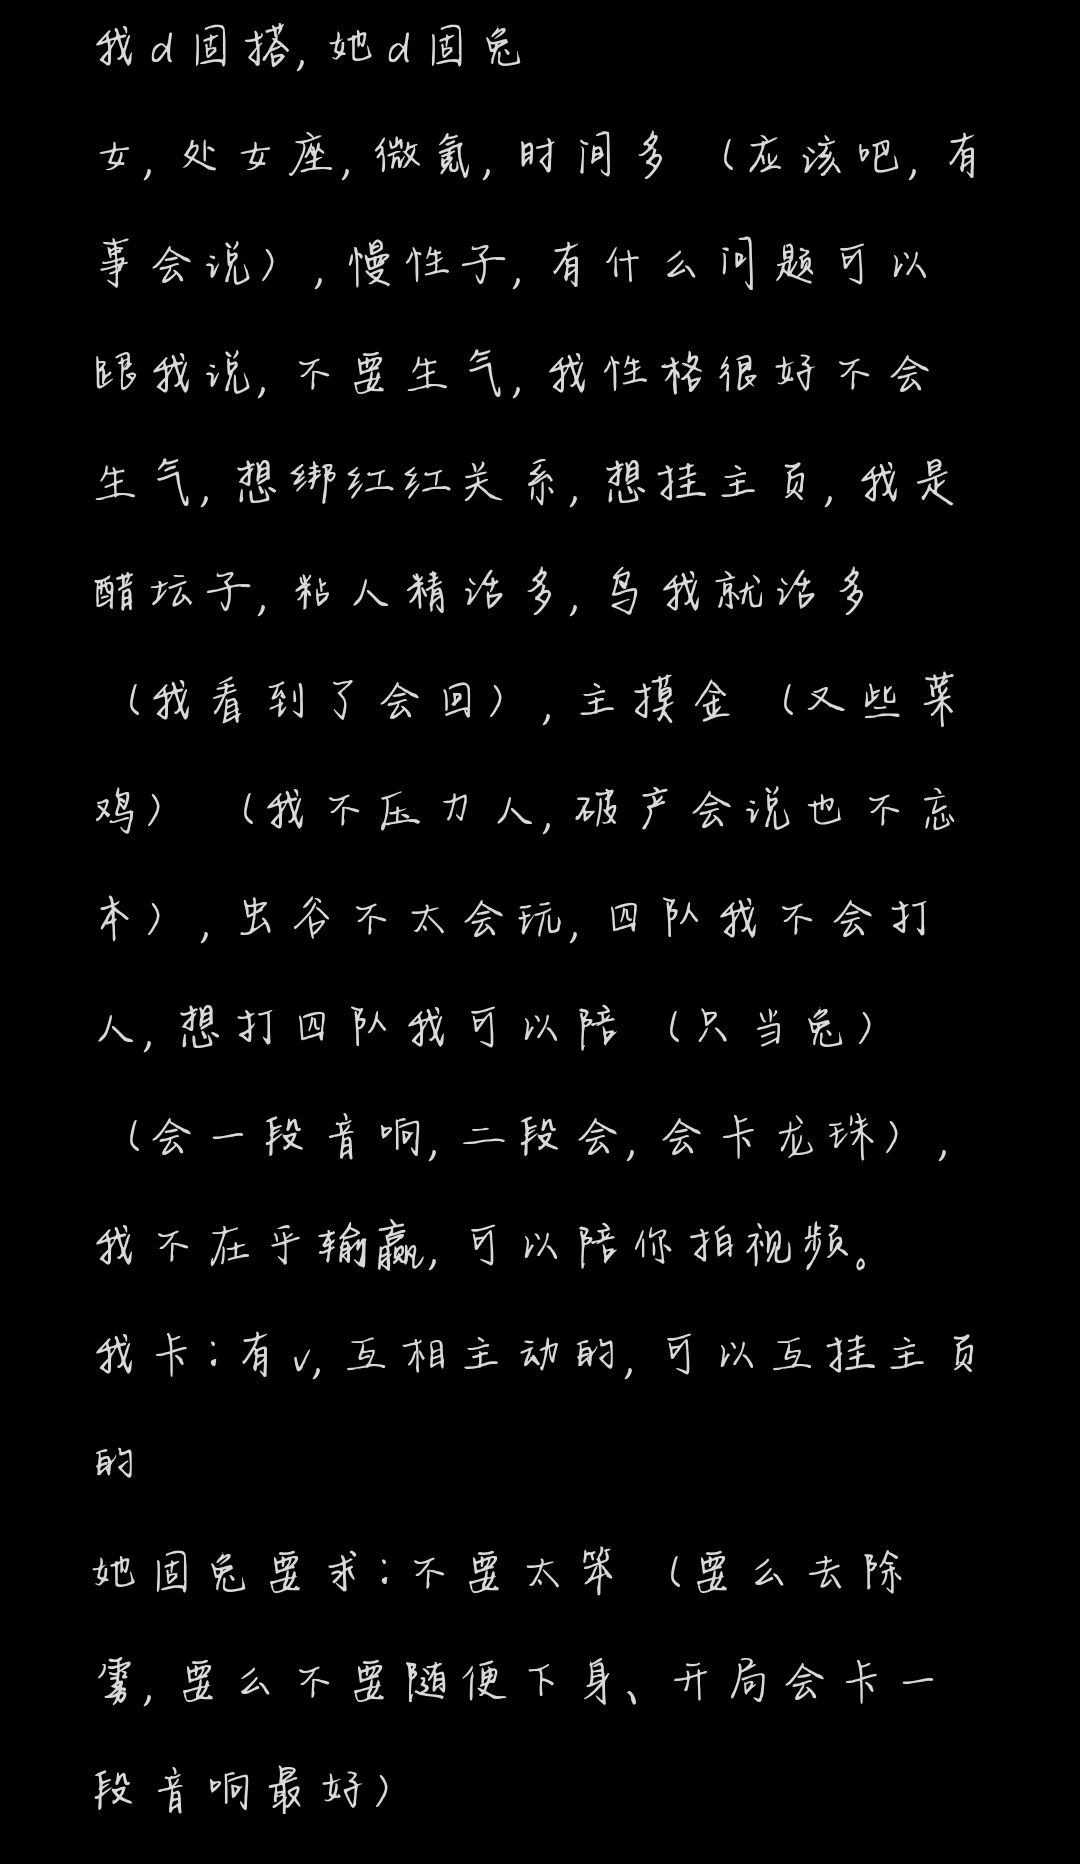 我d固搭,她d固兔
女,处女座,微氪,时间多（应该吧,有
事会说）,慢性子,有什么问题可以
跟我说,不要生气,我性格很好不会
生气,想绑红红关系,想挂主页,我是
醋坛子,粘人精话多,鸟我就话多
（我看到了会回）,主摸金（又些菜
鸡）（我不压力人,破产会说也不忘
本）,虫谷不太会玩,四队我不会打
人,想打四队我可以陪（只当兔）
（会一段音响,二段会,会卡龙珠）,
我不在乎输赢,可以陪你拍视频。
我卡:有v,互相主动的,可以互挂主页
的
她固兔要求:不要太笨（要么去除
雾,要么不要随便下身、开局会卡一
段音响最好）